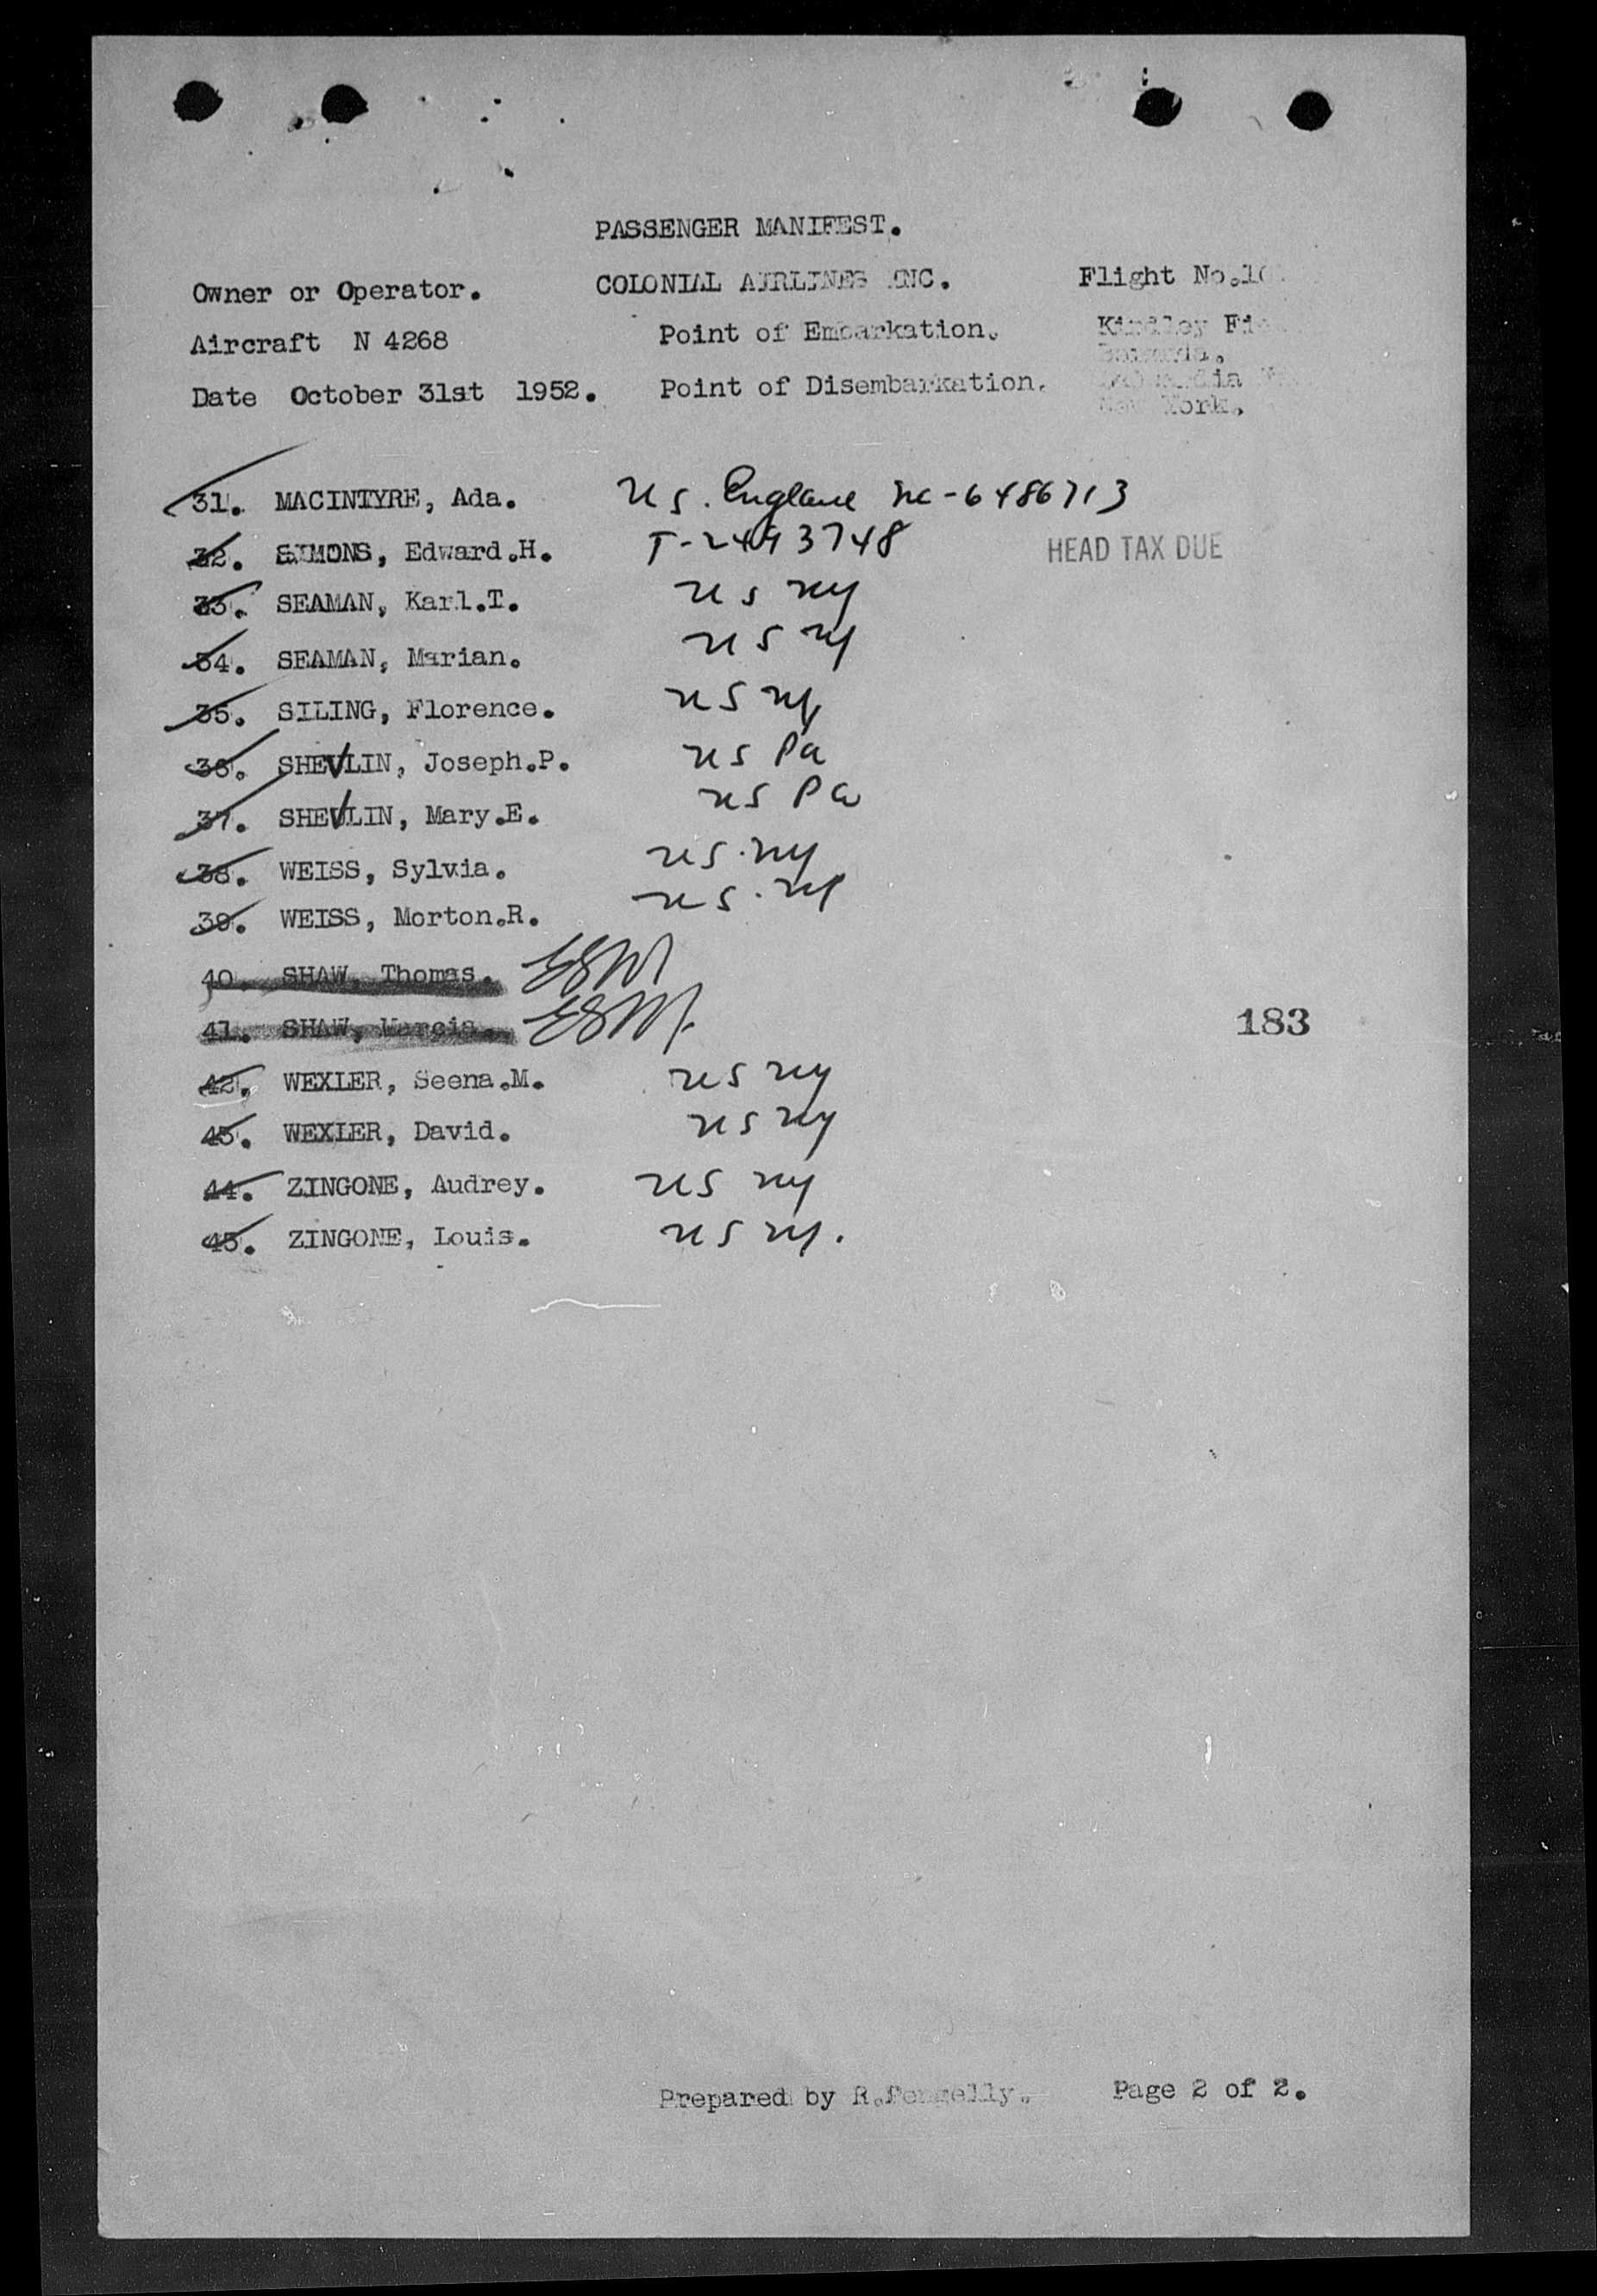 PASSENGER MANIFEST.
Owner or Operator. COLONIAL AIRLINES INC. Flight No.
Aircraft N 4268 Point of Embarkation. Kindley
Bermuda.
Date October 31st 1952. Point of Disembarkation.
New York.
31. MACINTYRE, Ada. US. England nc-6486713
32. SIMONS, Edward.H. T-2493748 HEAD TAX DUE
33. SEAMAN, Karl.T. US NY
34. SEAMAN, Marian. US NY
35. SILING, Florence. US NY
36. SHEVLIN, Joseph.P. US Pa
37. SHEVLIN, Mary.E. US Pa
38. WEISS, Sylvia. US. NY
39. WEISS, Morton.R. US. NY
40. SHAW, Thomas.
41. SHAW, Marcia. 183
42. WEXLER, Seena.M. US NY
43. WEXLER, David. US NY
44. ZINGONE, Audrey. US NY
45. ZINGONE, Louis. US NY.
Prepared by R.Pengelly. Page 2 of 2.